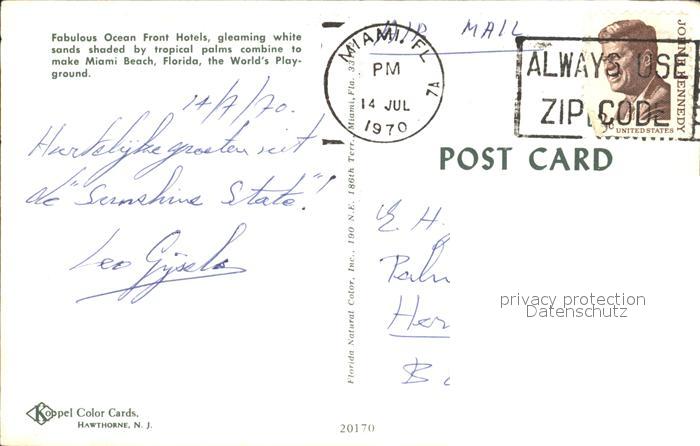 Fabulous Ocean Front Hotels, gleaming white
sands shaded by tropical palms combine to
make Miami Beach, Florida, the World's Play-
ground.
14/7/70.
Hartelijke groeten uit
de "Sunshine State"!
Leo
AIR MAIL
MIAMI, FL
PM
14 JUL
1970
7A
ALWAYS USE
ZIP CODE
JOHN F. KENNEDY
UNITED STATES
POST CARD
E. H.
Her
privacy protection
Datenschutz
Florida Natural Color, Inc., 190 N.E. 186th Terr., Miami, Fla. 33
Koppel Color Cards,
HAWTHORNE, N. J.
20170